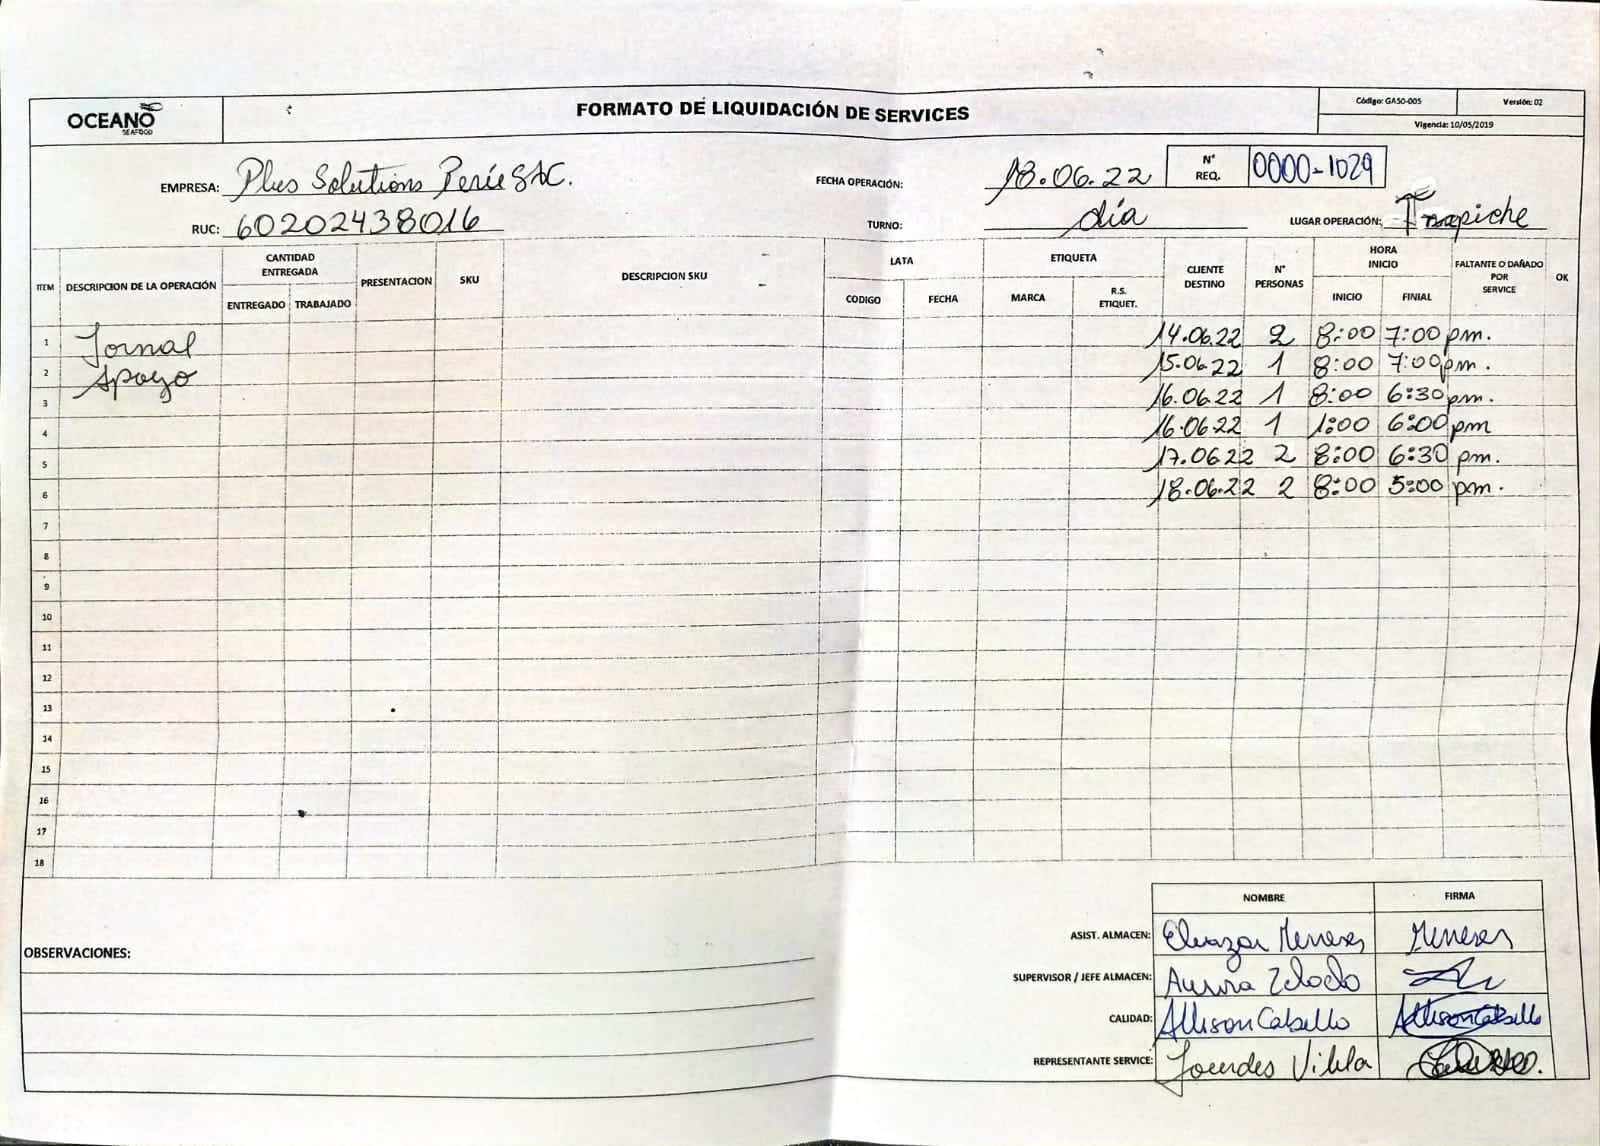 OCEANO
SEAFOOD
FORMATO DE LIQUIDACIÓN DE SERVICES
Código: GASO-005
Versión: 02
Vigencia: 10/05/2019
EMPRESA: Plus Solutions Perú SAC.
FECHA OPERACIÓN: 18.06.22
N° REQ. 0000-1029
RUC: 60202438016
TURNO: día
LUGAR OPERACIÓN: Trapiche
ITEM DESCRIPCION DE LA OPERACIÓN CANTIDAD ENTREGADA PRESENTACION SKU DESCRIPCION SKU LATA ETIQUETA CLIENTE DESTINO N° PERSONAS HORA INICIO FALTANTE O DAÑADO POR SERVICE OK
ENTREGADO TRABAJADO CODIGO FECHA MARCA R.S. ETIQUET. INICIO FINIAL
1 Jornal 14.06.22 2 8:00 7:00 pm.
2 Apoyo 15.06.22 1 8:00 7:00 pm.
3 16.06.22 1 8:00 6:30 pm.
4 16.06.22 1 1:00 6:00 pm
5 17.06.22 2 8:00 6:30 pm.
6 18.06.22 2 8:00 5:00 pm.
7
8
9
10
11
12
13
14
15
16
17
18
NOMBRE FIRMA
OBSERVACIONES:
ASIST. ALMACEN: Eleazar Meneses Meneses
SUPERVISOR / JEFE ALMACEN: Aurora
CALIDAD: Allison Cabello Allison Cabello
REPRESENTANTE SERVICE: Lourdes Vilela